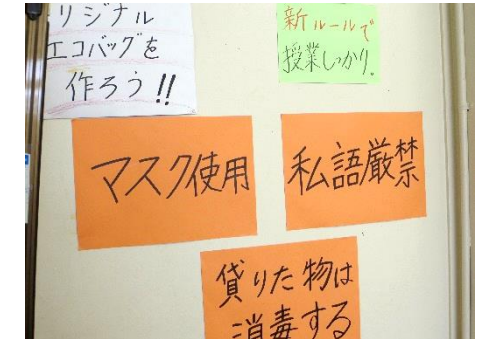 リジナル
エコバッグを
作ろう!!
新ルールで
授業しっかり.
マスク使用
私語厳禁
貸りた物は
消毒する